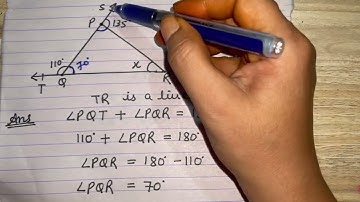 S
P 135
110° 70° x
T Q R
TR is a
Ans ∠PQT + ∠PQR =
110° + ∠PQR = 180°
∠PQR = 180° - 110°
∠PQR = 70°